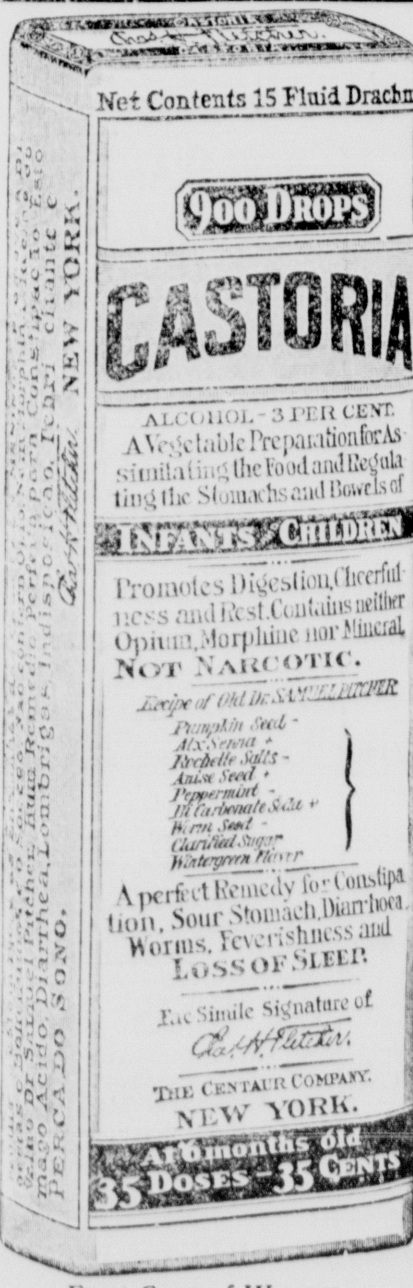 Chas. H. Fletcher.
Net Contents 15 Fluid Drachm
900 DROPS
CASTORIA
ALCOHOL - 3 PER CENT.
A Vegetable Preparation for As-
similating the Food and Regula-
ting the Stomachs and Bowels of
INFANTS & CHILDREN
Promotes Digestion, Cheerful-
ness and Rest. Contains neither
Opium, Morphine nor Mineral.
NOT NARCOTIC.
Recipe of Old Dr. SAMUEL PITCHER
Pumpkin Seed -
Alx Senna +
Rochelle Salts -
Anise Seed +
Peppermint -
Bi Carbonate Soda +
Worm Seed -
Clarified Sugar
Wintergreen Flavor
A perfect Remedy for Constipa-
tion, Sour Stomach, Diarrhoea,
Worms, Feverishness and
LOSS OF SLEEP.
Fac Simile Signature of
Chas. H. Fletcher.
THE CENTAUR COMPANY.
NEW YORK.
At 6 months old
35 DOSES - 35 CENTS
Perfeito para Constipação Esto
mago Acido, Diarrhea, Lombrigas, Indisposicao, Febri
PERCA DO SONO.
Chas. H. Fletcher. NEW YORK.